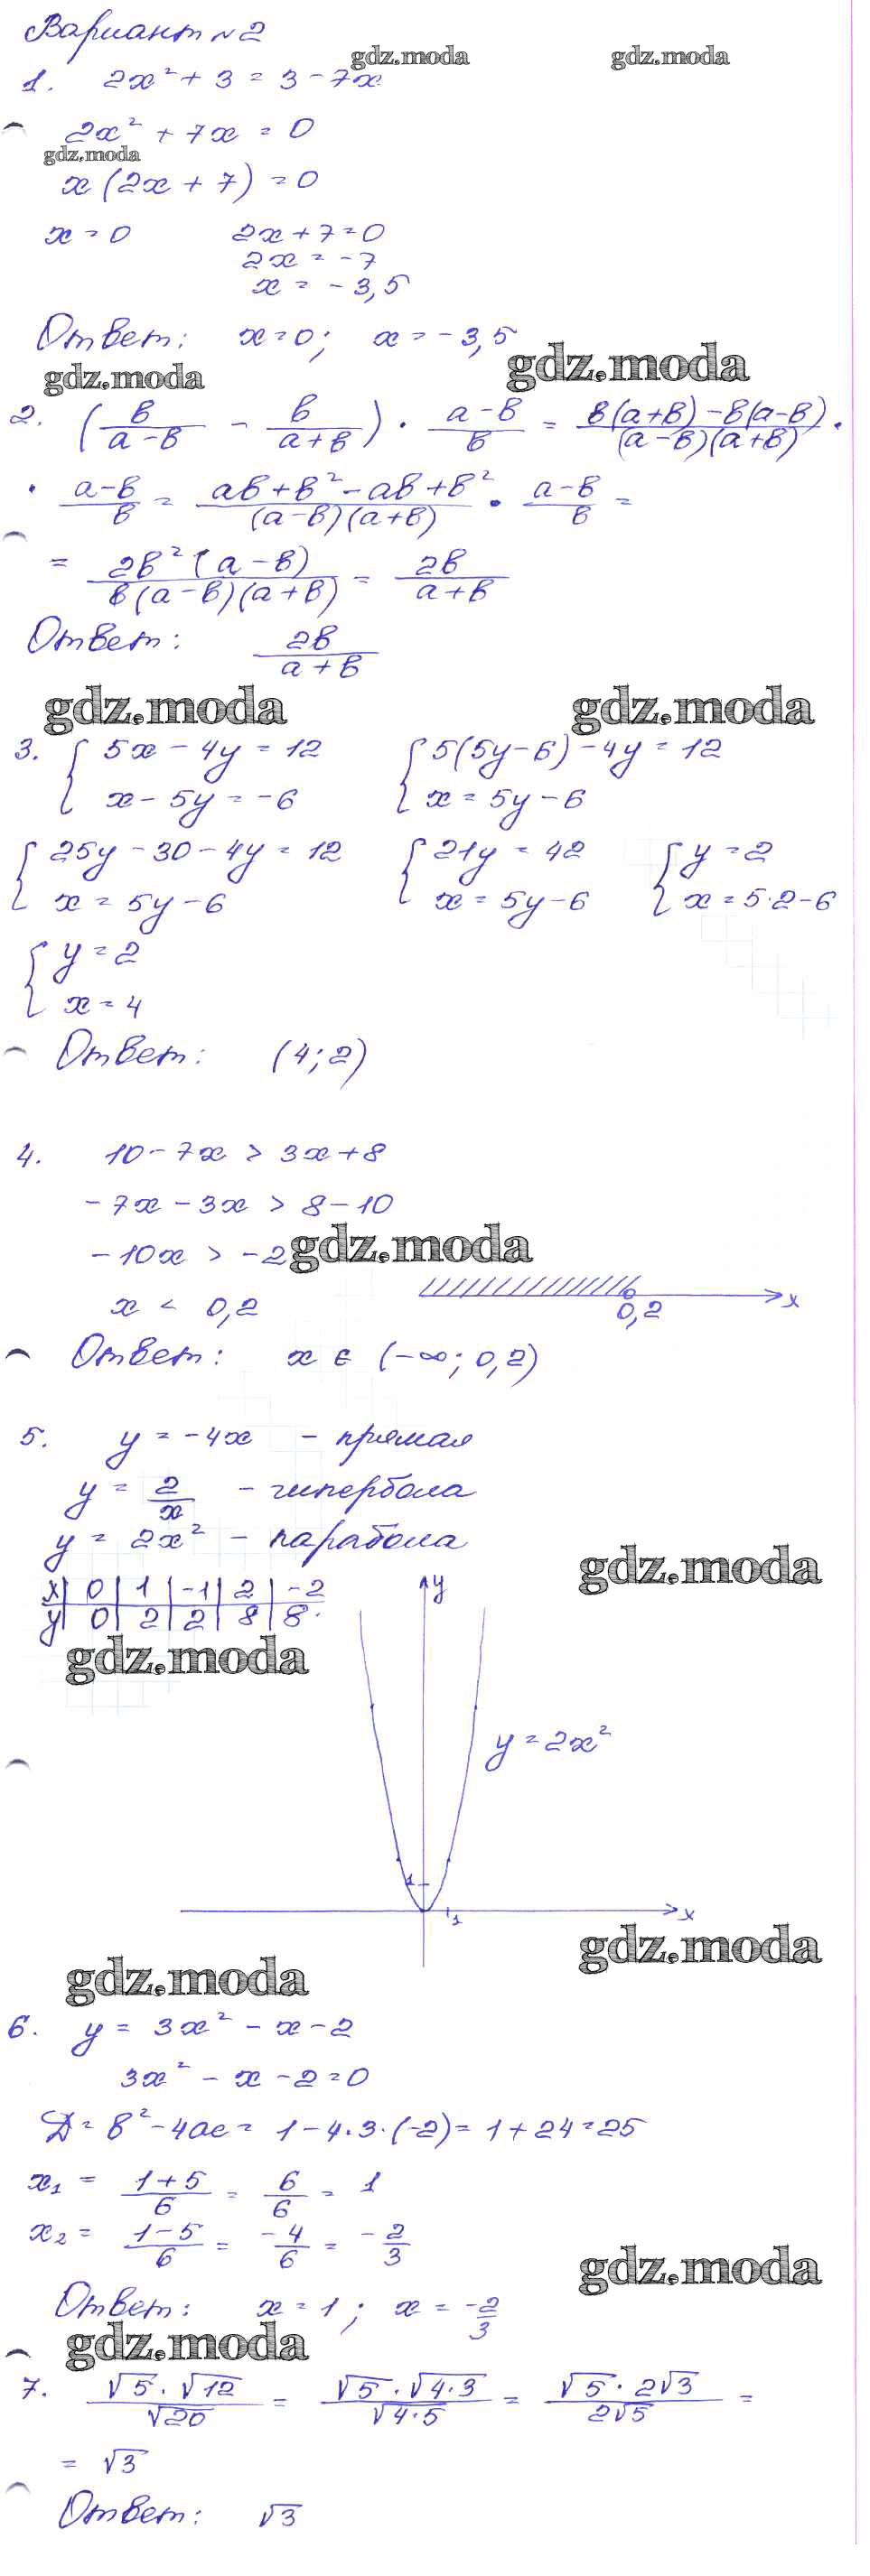 Вариант №2
gdz.moda gdz.moda
1. 2x² + 3 = 3 - 7x
2x² + 7x = 0
gdz.moda
x(2x + 7) = 0
x = 0 2x + 7 = 0
2x = -7
x = -3,5
Ответ: x = 0; x = -3,5
gdz.moda gdz.moda
2. (в/(а-в) - в/(а+в)) · (а-в)/в = (в(а+в) - в(а-в))/((а-в)(а+в)) ·
· (а-в)/в = (ав+в²-ав+в²)/((а-в)(а+в)) · (а-в)/в =
= 2в²(а-в)/(в(а-в)(а+в)) = 2в/(а+в)
Ответ: 2в/(а+в)
gdz.moda gdz.moda
3. { 5x - 4y = 12 { 5(5y-6) - 4y = 12
x - 5y = -6 x = 5y - 6
{ 25y - 30 - 4y = 12 { 21y = 42 { y = 2
x = 5y - 6 x = 5y - 6 x = 5·2-6
{ y = 2
x = 4
Ответ: (4; 2)
4. 10 - 7x > 3x + 8
-7x - 3x > 8 - 10
-10x > -2 gdz.moda
x < 0,2 0,2 x
Ответ: x ∈ (-∞; 0,2)
5. y = -4x - прямая
y = 2/x - гипербола
y = 2x² - парабола
gdz.moda
x | 0 | 1 | -1 | 2 | -2 y
y | 0 | 2 | 2 | 8 | 8.
gdz.moda
y = 2x²
1
1 x
gdz.moda
gdz.moda
6. y = 3x² - x - 2
3x² - x - 2 = 0
Д = в² - 4ас = 1 - 4·3·(-2) = 1 + 24 = 25
x₁ = (1+5)/6 = 6/6 = 1
x₂ = (1-5)/6 = -4/6 = -2/3
gdz.moda
Ответ: x = 1; x = -2/3
gdz.moda
7. (√5 · √12)/√20 = (√5 · √4·3)/√4·5 = (√5 · 2√3)/2√5 =
= √3
Ответ: √3